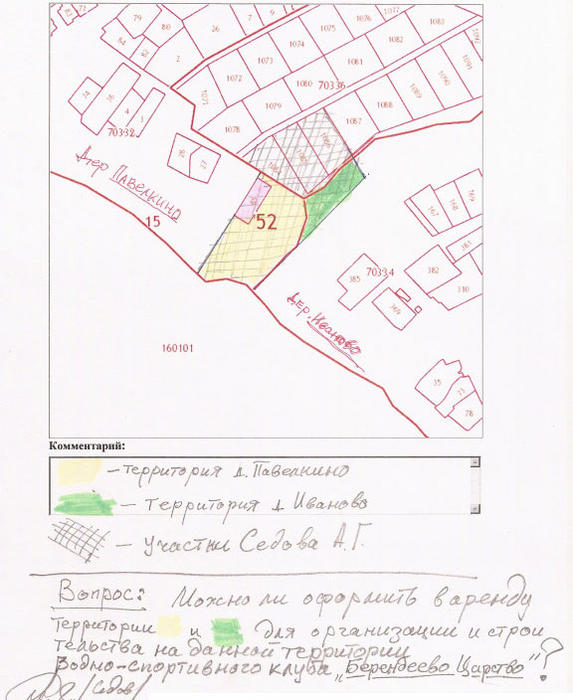 79
80
26
7
9
1075
1076
1077
1083
84
82
2
1074
1082
1073
1081
1091
1072
1080
70336
1090
24
26
1071
1079
1088
1089
4
3
1078
1087
70332
28
27
дер Павелкино
15
52
167
168
169
383
70334
385
382
380
369
дер. Иваново
160101
35
73
78
Комментарий:
– территория д. Павелкино
– территория д Иваново
– Участки Седова А.Г.
Вопрос: Можно ли оформить в аренду
территории и для организации и строи
тельства на данной территории
Водно-спортивного клуба „Берендеево Царство"?
/Седов/